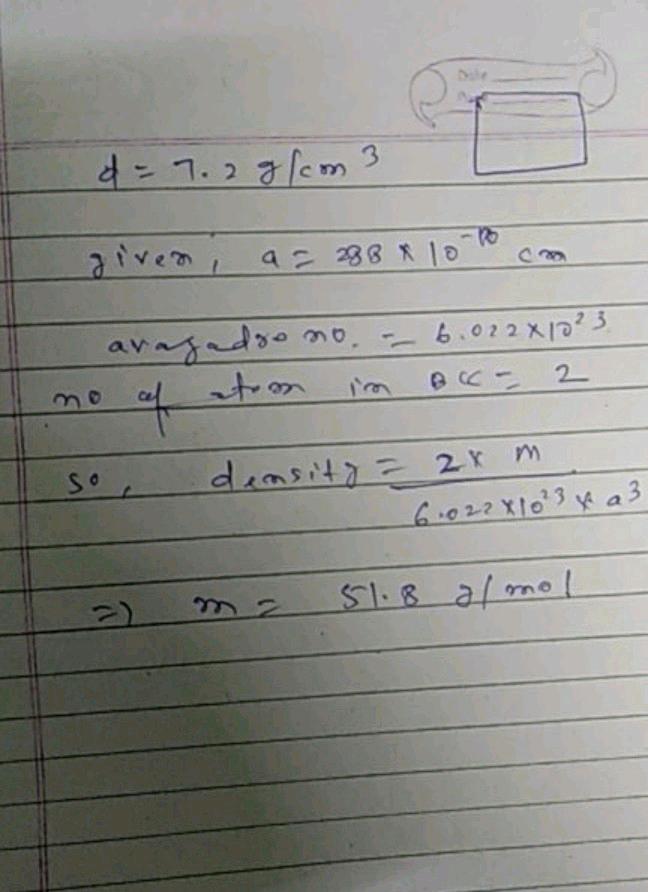 Date
d = 7.2 g/cm³
given, a = 288 × 10⁻¹⁰ cm
avagadro no. = 6.022×10²³
no of atom in BCC = 2
so, density = 2× m / 6.022×10²³ × a³
=) m = 51.8 g/mol